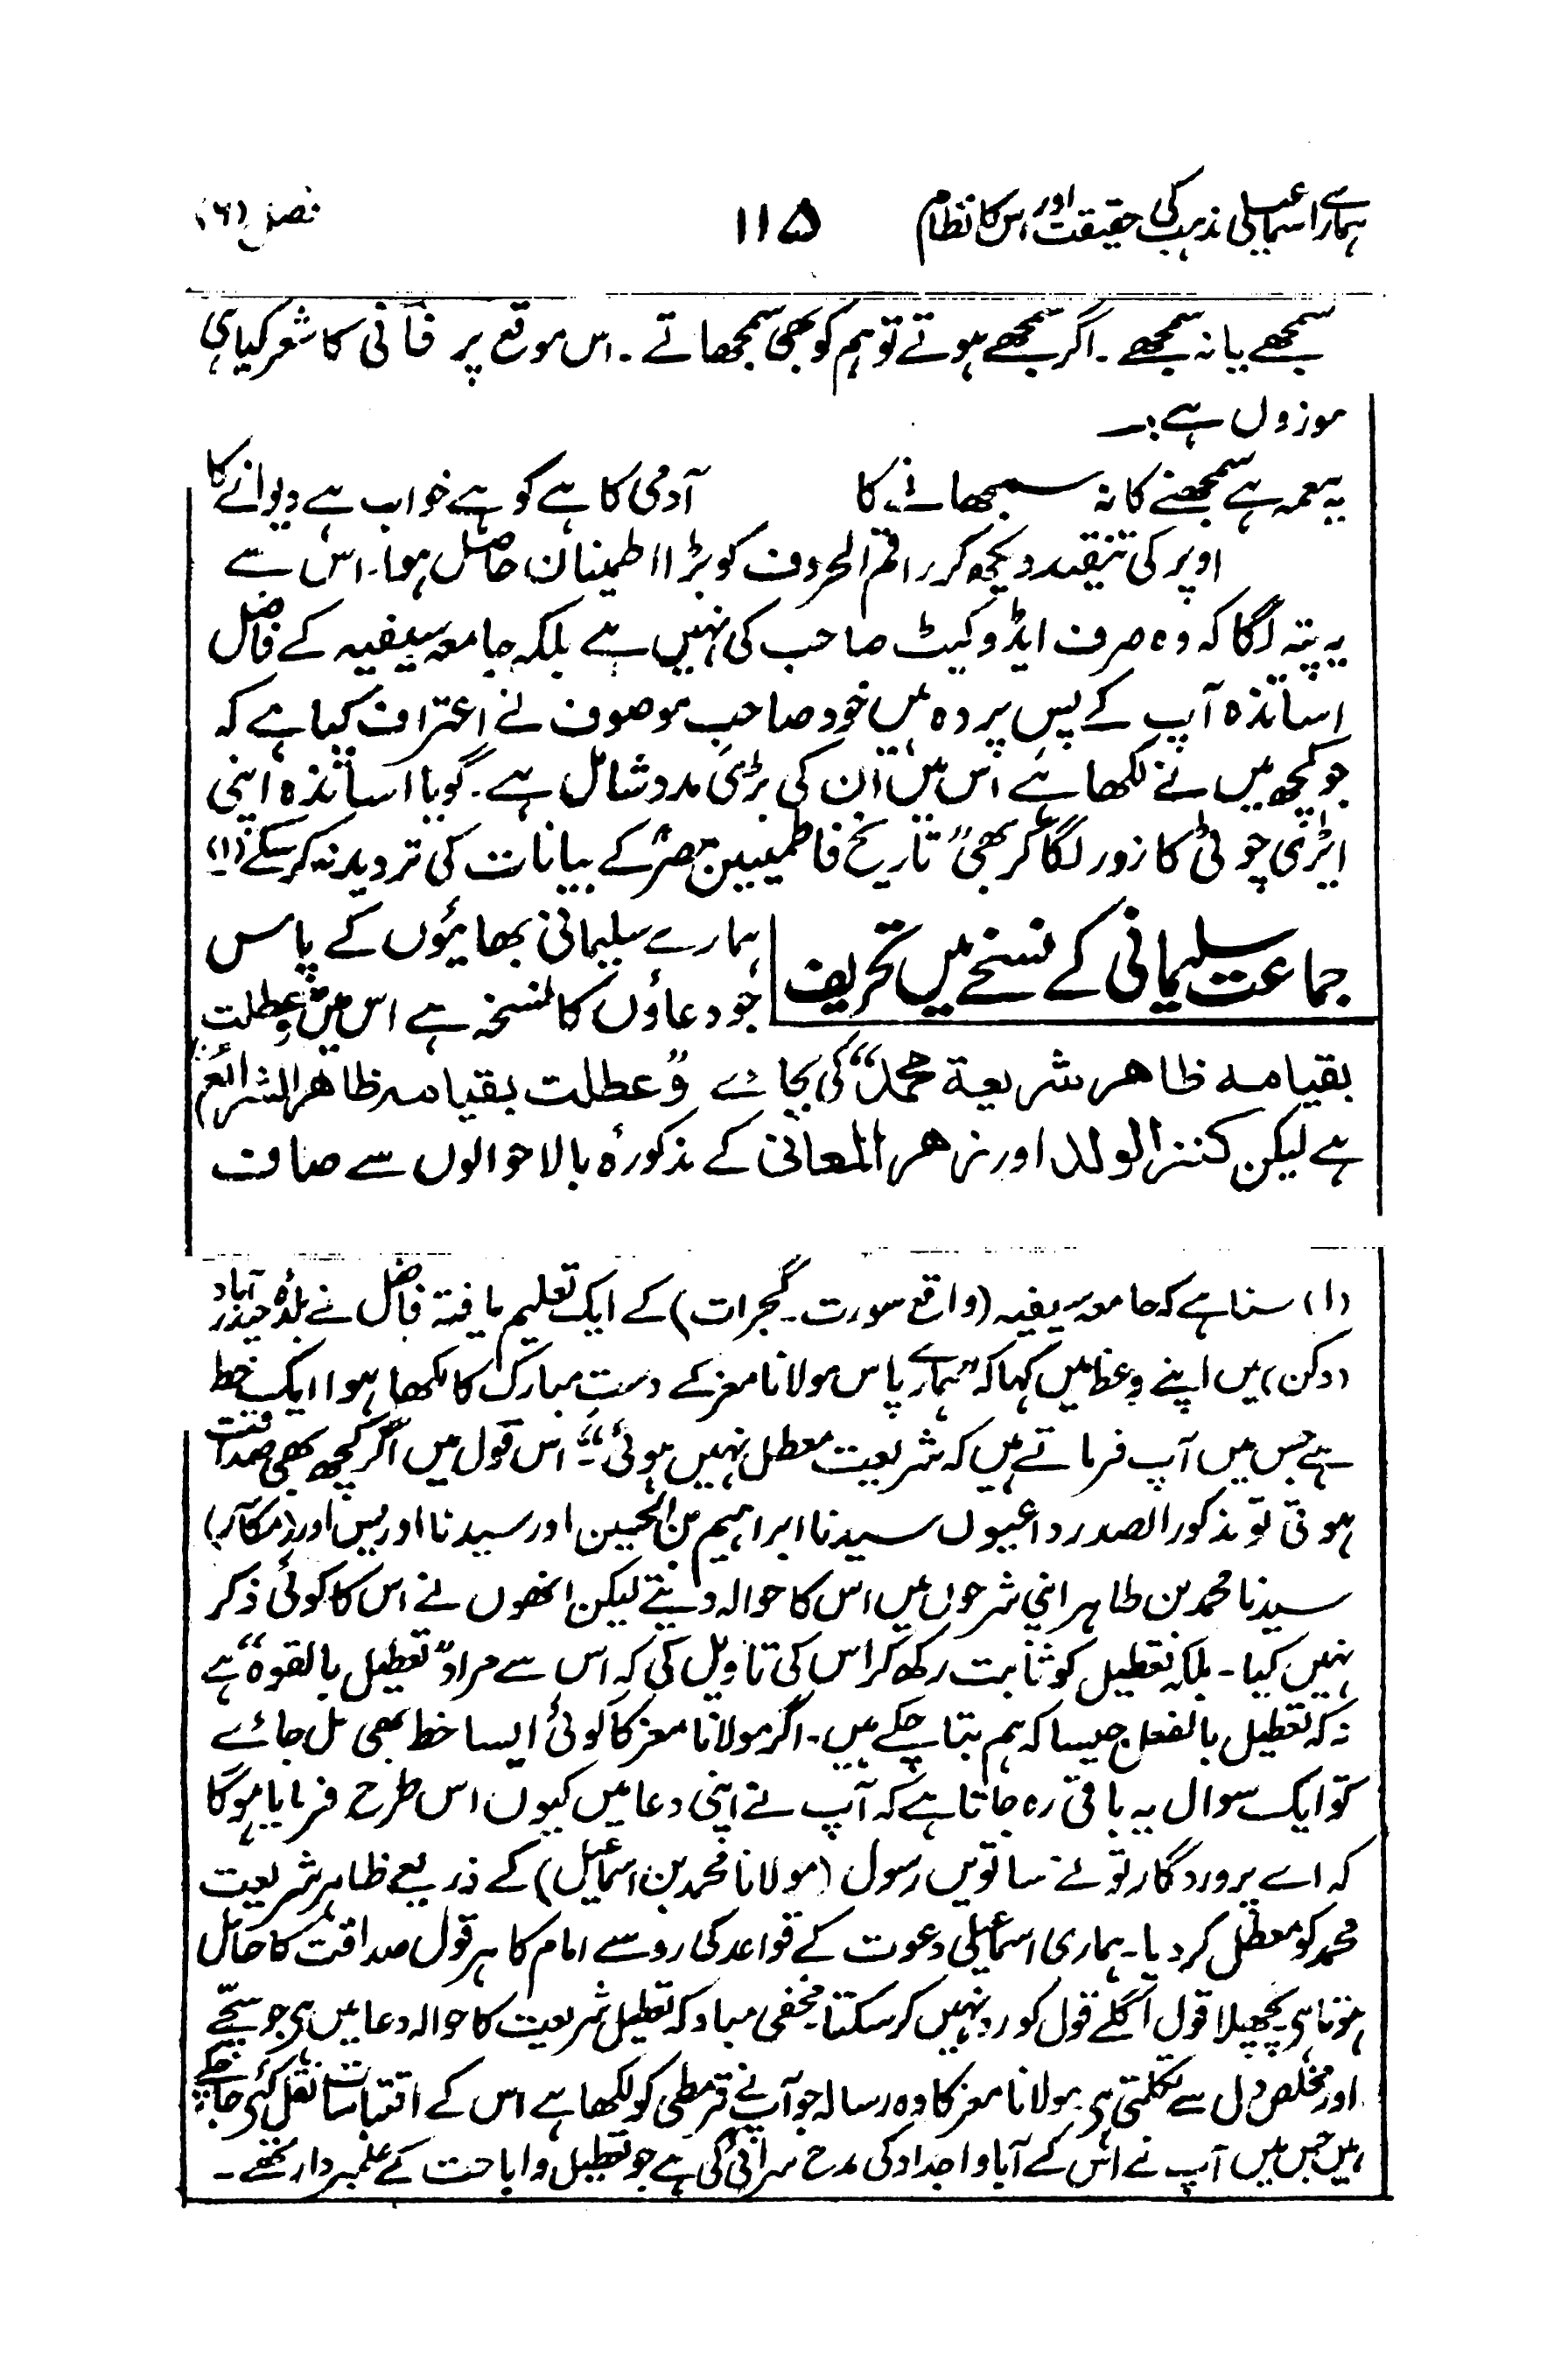 ہمارے اسماعیلی مذہب کی حقیقت اور اس کا نظام ۱۱۵ فصل (۶)
سمجھے یا نہ سمجھے ۔ اگر سمجھے ہوتے تو ہم کو بھی سمجھاتے ۔ اس موقع پر فانی کا شعر کیا ہی
موزوں ہے :۔
یہ معمہ ہے سمجھنے کا نہ سمجھانے کا آدمی کاہے کو ہے خواب ہے دیوانے کا
اوپر کی تنقید دیکھ کر راقم الحروف کو بڑا اطمینان حاصل ہوا۔ اس سے
یہ پتہ لگا کہ وہ صرف ایڈوکیٹ صاحب کی نہیں ہے بلکہ جامعہ سیفیہ کے فاضل
اساتذہ آپ کے پس پردہ ہیں خود صاحب موصوف نے اعتراف کیا ہے کہ
جو کچھ میں نے لکھا ہے اس میں ان کی بڑی مدد شامل ہے ۔ گویا اساتذہ اپنی
ایڑی چوٹی کا زور لگا کر بھی “تاریخ فاطمیین مصر” کے بیانات کی تردید نہ کر سکے (۱)
جماعت سلیمانی کے نسخے میں تحریف
ہمارے سلیمانی بھائیوں کے پاس
جو دعاؤں کا نسخہ ہے اس میں “وعطلت
بقیامہ ظاھر شریعۃ محمد” کی بجائے “وعطلت بقیامہ ظاھر الشرائع”
ہے لیکن کنز الولد اور زھر المعانی کے مذکورہ بالا حوالوں سے صاف
(۱) سنا ہے کہ جامعہ سیفیہ (واقع سورت ۔ گجرات) کے ایک تعلیم یافتہ فاضل نے بلدہ حیدرآباد
(دکن) میں اپنے وعظ میں کہا کہ “ہمارے پاس مولانا معز کے دست مبارک کا لکھا ہوا ایک خط
ہے جس میں آپ فرماتے ہیں کہ شریعت معطل نہیں ہوئی”۔ اس قول میں اگر کچھ بھی صداقت
ہوتی تو مذکور الصدر داعیوں سیدنا ابراہیم بن الحسین اور سیدنا ادریس اور (مکاسر)
سیدنا محمد بن طاہر اپنی شرحوں میں اس کا حوالہ دیتے لیکن انھوں نے اس کا کوئی ذکر
نہیں کیا ۔ بلکہ تعطیل کو ثابت رکھ کر اس کی تاویل کی کہ اس سے مراد “تعطیل بالقوہ” ہے
نہ کہ تعطیل بالفعل جیسا کہ ہم بتا چکے ہیں ۔ اگر مولانا معز کا کوئی ایسا خط بھی مل جائے
تو ایک سوال یہ باقی رہ جاتا ہے کہ آپ نے اپنی دعا میں کیوں اس طرح فرمایا ہوگا
کہ اے پروردگار تو نے ساتویں رسول (مولانا محمد بن اسماعیل) کے ذریعے ظاہر شریعت
محمد کو معطل کر دیا ۔ ہماری اسماعیلی دعوت کے قواعد کی رو سے امام کا ہر قول صداقت کا حامل
ہوتا ہی پچھلا قول اگلے قول کو رد نہیں کر سکتا ۔ مخفی مباد کہ تعطیل شریعت کا حوالہ دعا میں ہی جو سچے
اور مخلص دل سے نکلتی ہی ۔ مولانا معز کا وہ رسالہ جو آپ نے قرمطی کو لکھا ہے اس کے اقتباسات نقل کئے جا چکے
ہیں جس میں آپ نے اس کے آبا و اجداد کی مدح سرائی کی ہے جو تعطیل و اباحت کے علمبردار تھے ۔